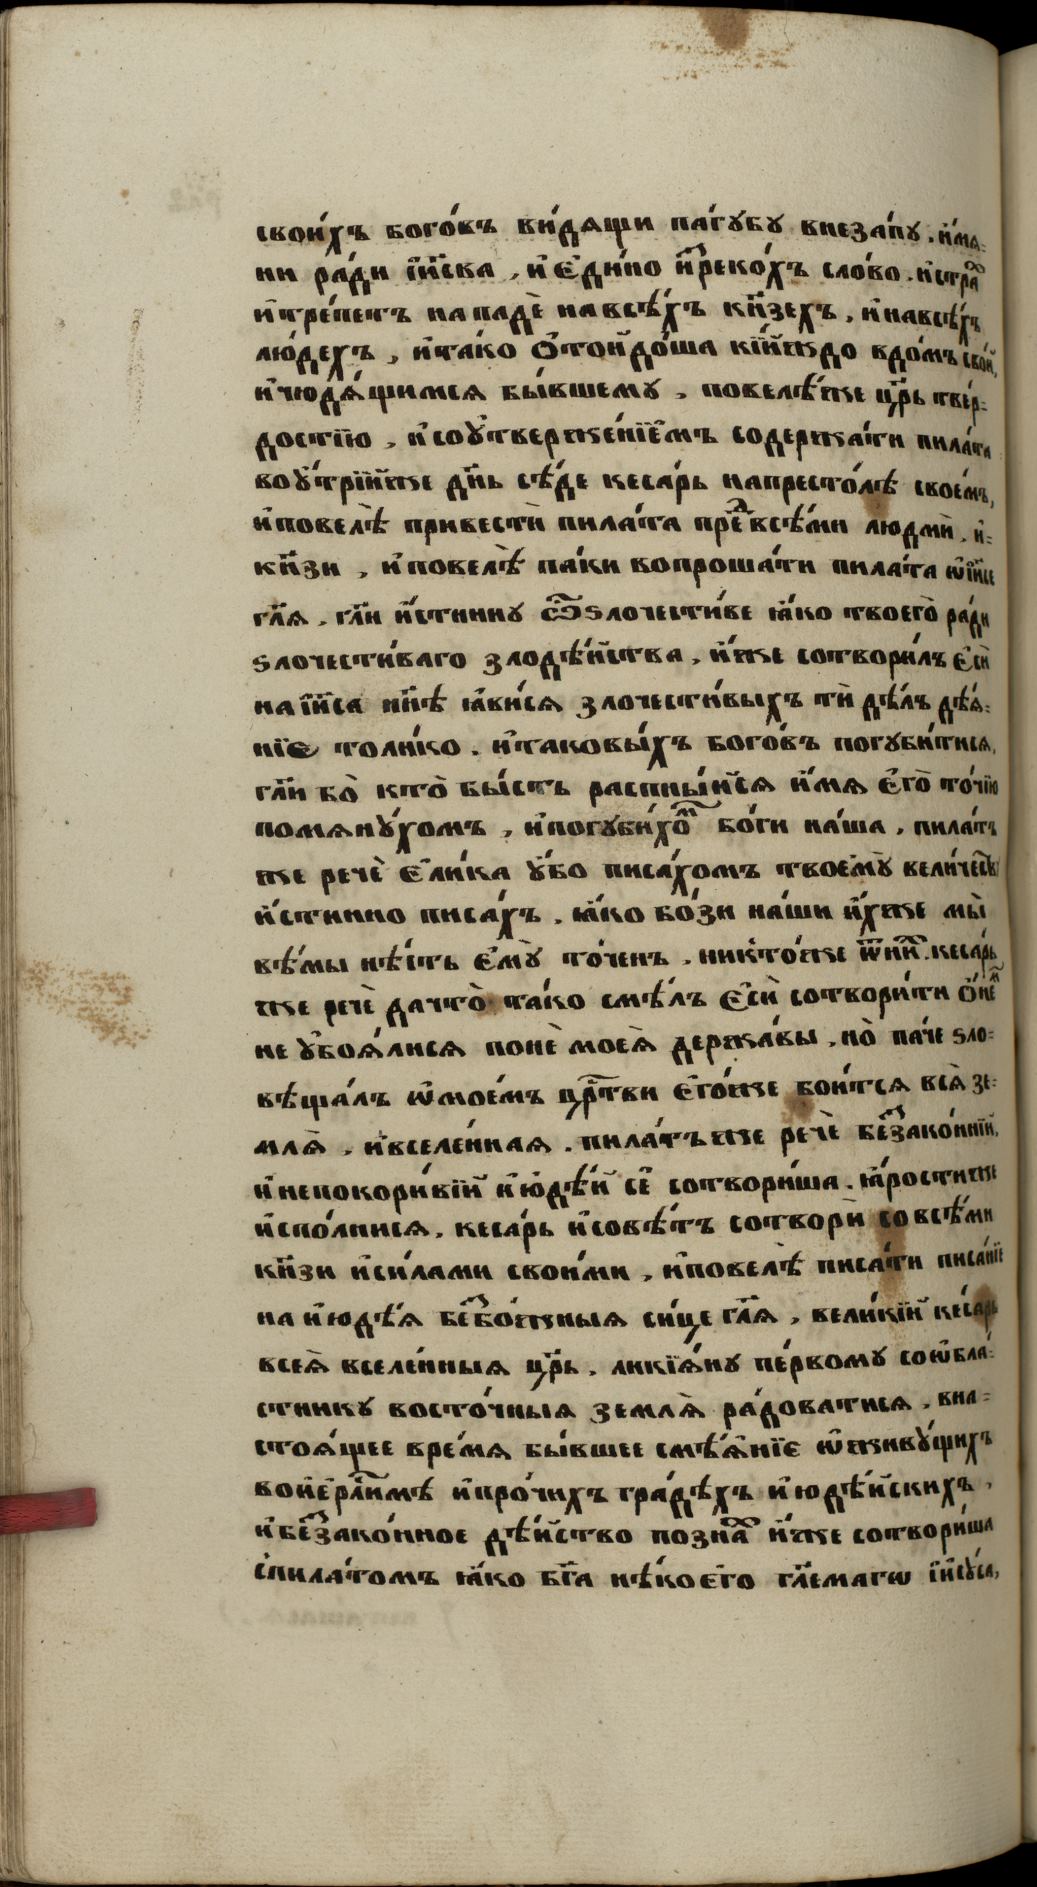 свои́хъ бого́въ ви́дящи па́гꙋбꙋ внеза́пꙋ. и҆́мя-
ни ра́ди і҆и҃сва, и҆ є҆ди́но и҆зⷬ҇реко́хъ сло́во. и҆ стра́ⷯ
и҆ тре́петъ нападѐ на всѣ́хъ кн҃зехъ, и҆ на всѣ́хъ
лю́дехъ, и҆ та́ко ѿтоидо́ша кі́йждо в до́мъ сво́й,
и҆ чюдя́щимся бы́вшемꙋ, повелѣ́же цр҃ь тве́р-
достїю, и҆ со ᲂу҆твержде́нїемъ содержа́ти пила́та
во ᲂу҆́трїйже дн҃ь сѣ́де кеса́рь на престо́лѣ свое́мъ,
и҆ повелѣ̀ привестѝ пила́та преⷣ всѣ́ми людмѝ, и҆-
кн҃зи, и҆ повелѣ̀ па́ки вопроша́ти пила́та ѡ҆ і҆и҃се
гл҃я, гл҃и и҆́стиннꙋ ѽ ѕлочести́ве ꙗ҆́ко твоегѡ̀ ра́ди
ѕлочести́ваго злодѣ́йства, и҆́же сотвори́лъ є҆сѝ
на і҆и҃са нн҃ѣ ꙗ҆ви́ся злочести́выхъ тѝ дѣ́лъ дѣя́-
нїе толи́ко. и҆ таковы́хъ бого́въ погꙋби́тися,
гл҃и бо̀ кто̀ бы́сть распны́йся и҆́мя є҆го̀ то́чїю
помянꙋ́хомъ, и҆ погꙋби́хоⷨ бо́ги на́ша, пила́тъ
же речѐ є҆ли́ка ᲂу҆́бо писа́хомъ твоемꙋ̀ вели́чествꙋ
и҆́стинно писа́хъ, ꙗ҆́ко бо́зи на́ши и҆́хже мы̀
вѣ́мы нѣ́сть є҆мꙋ̀ то́ченъ, никто́же ѿ ни́ⷯ. кеса́рь
же речѐ да что̀ та́ко смѣ́лъ є҆сѝ сотвори́ти ѻ҆ не́ⷨ
не ᲂу҆боя́лися понѐ моея̀ держа́вы, но̀ па́че ѕло-
вѣща́лъ ѡ҆ мое́мъ црⷭ҇тви є҆го́же бои́тся вся̀ зе-
мля̀, и҆ вселе́нная. пила́тъ же речѐ беⷥзако́ннїи,
и҆ непокори́вїи и҆ю҆дѣ́и сѐ сотвори́ша. ꙗ҆́ростиже
и҆спо́лнися, кеса́рь и҆ совѣ́тъ сотворѝ со всѣ́ми
кн҃зи и҆ си́лами свои́ми, и҆ повелѣ̀ писа́ти писа́нїе
на и҆ю҆дѣ́я беⷥбо́жныя си́це гл҃я, вели́кїй кеса́рь
всея̀ вселе́нныя цр҃ь, ликїя́нꙋ пе́рвомꙋ со ѡ҆бла́-
стникꙋ восто́чныя земля̀ ра́доватися, в на-
стоя́щее вре́мя бы́вшее смѣя́нїе ѡ҆ живꙋ́щихъ
во і҆ерⷭ҇ли́мѣ и҆ про́чихъ гра́дѣхъ и҆ю҆дѣ́йскихъ,
и҆ беⷥзако́нное дѣ́йство позна́ⷯ и҆́же сотвори́ша
с пила́томъ ꙗ҆́ко бг҃а нѣ́коего гл҃емагѡ і҆исꙋ́са,